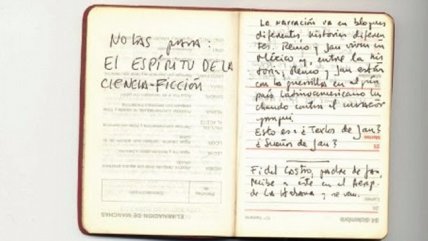 NOTAS para:
EL ESPÍRITU DE LA
CIENCIA-FICCIÓN
ELIMINACION DE MANCHAS
La narración va en bloques
diferentes, historias diferen-
tes. Remo y Jan viven en
México y, entre la his
toria, Remo y Jan están
con la guerrilla en algún
país Latinoamericano lu
chando contra el invasor
yanqui.
Esto es: ¿Textos de Jan?
¿Sueños de Jan?
Fidel Castro, padre de Jan,
recibe a este en el Aerop.
de La Habana y se van.